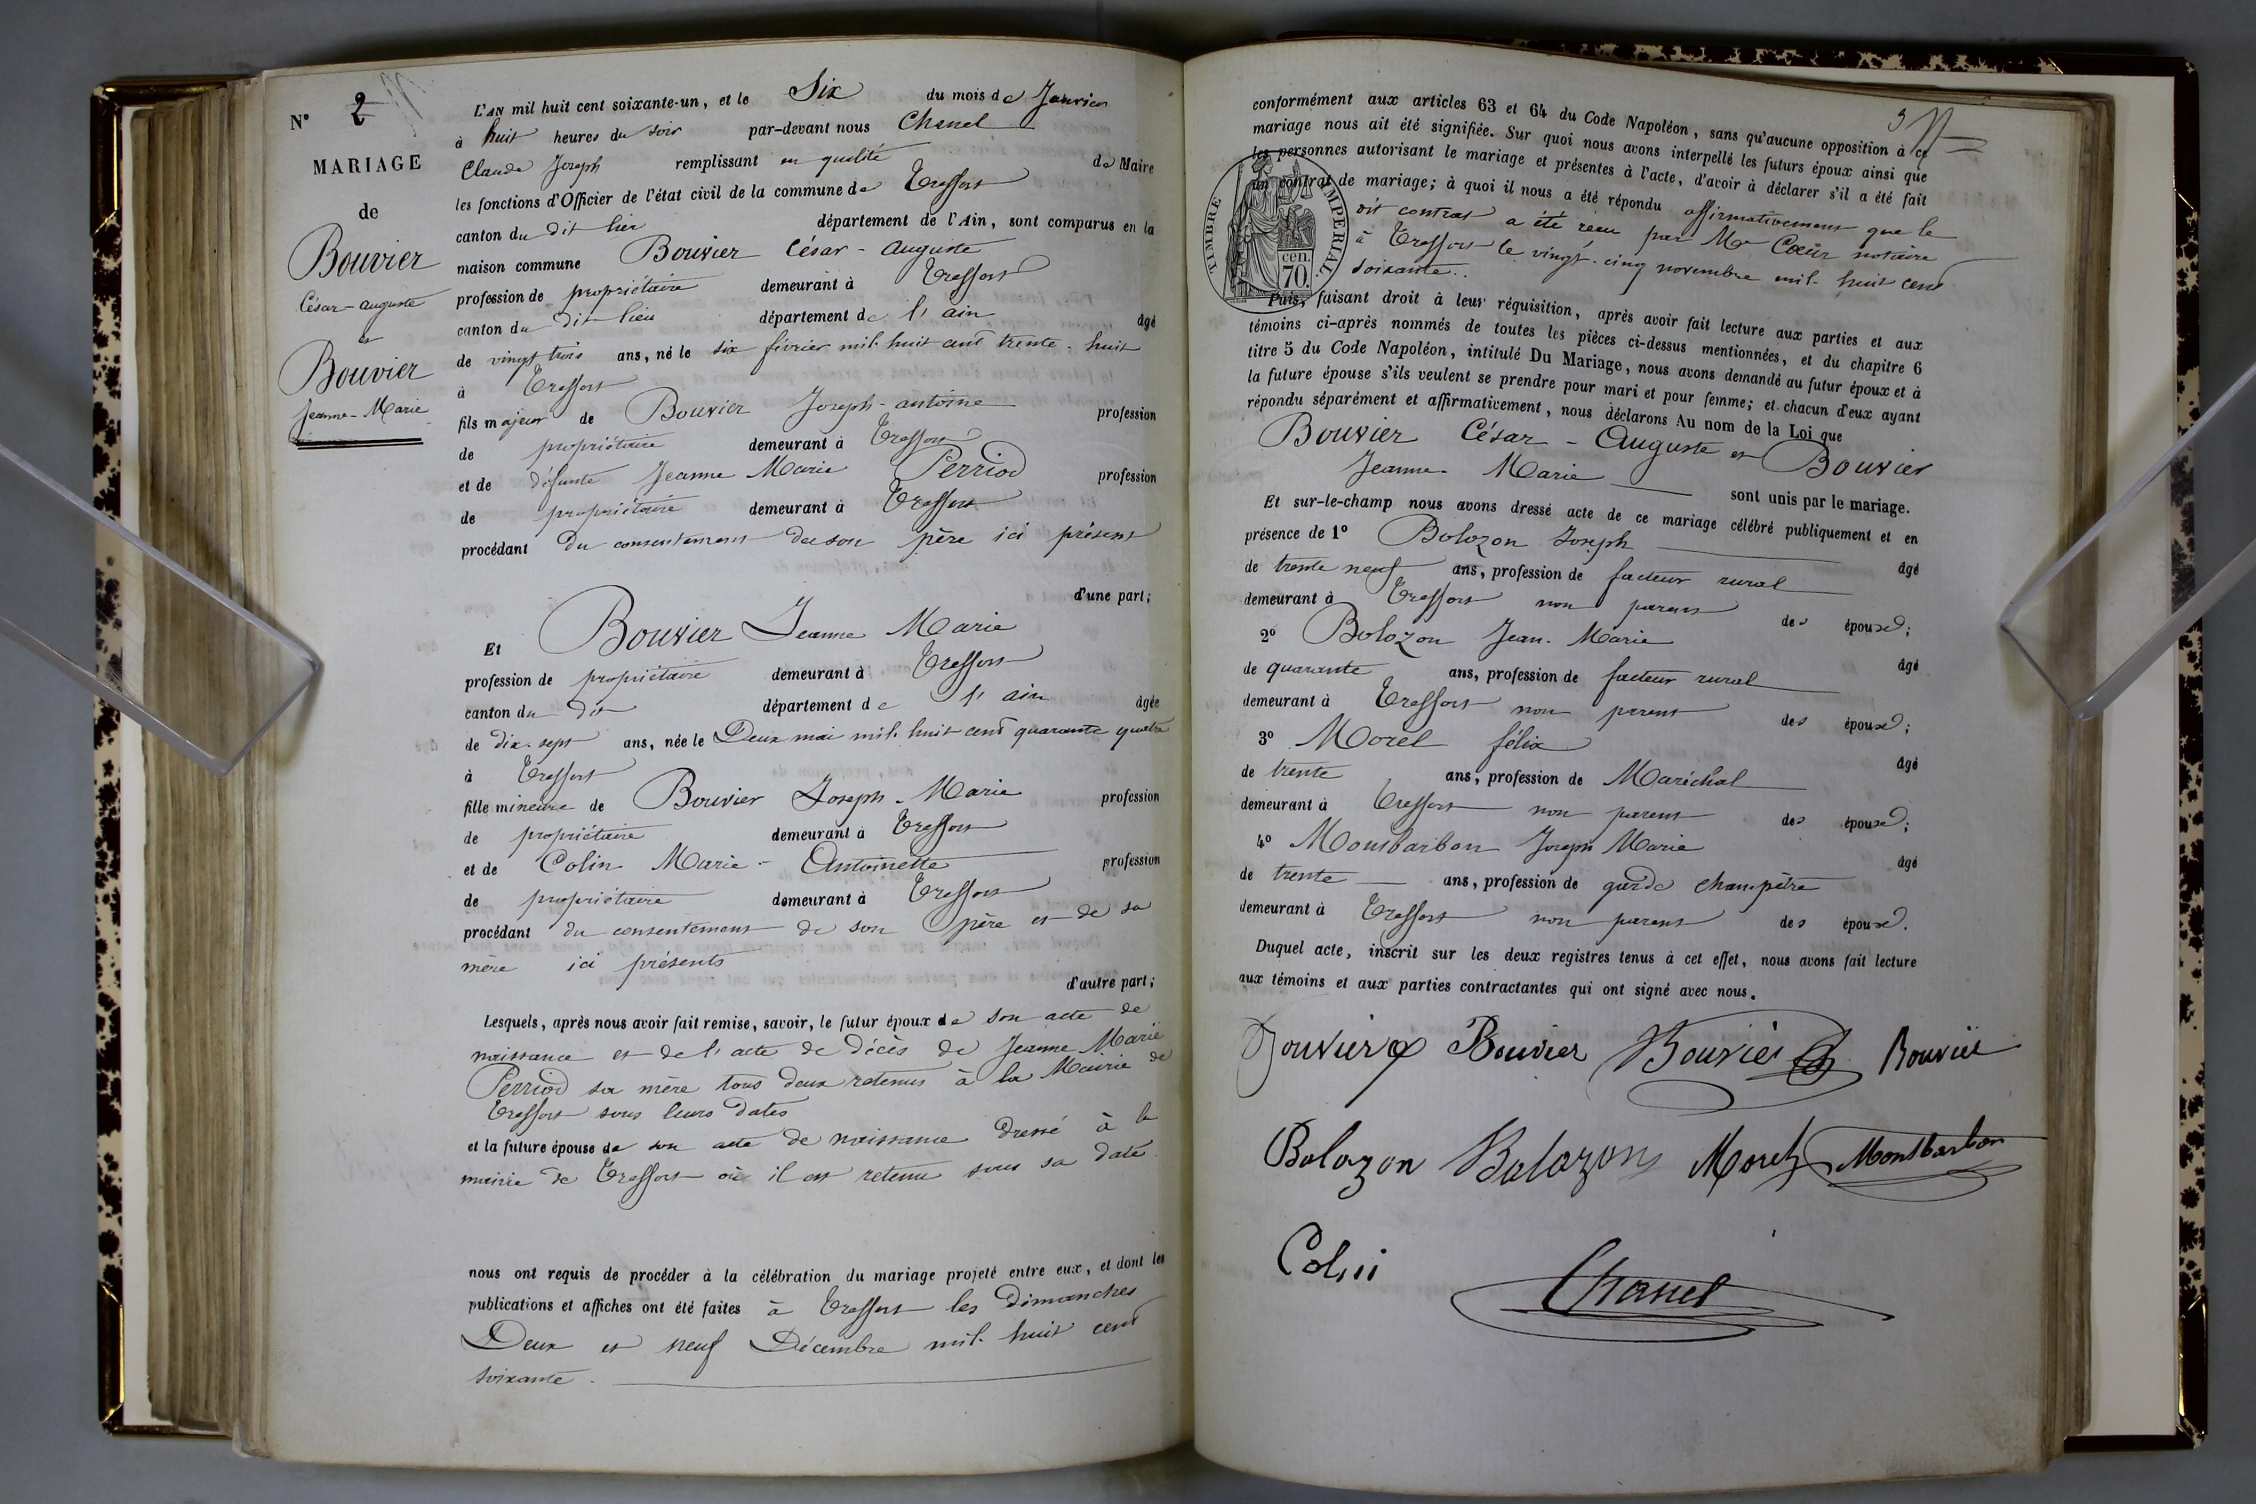 N° 2
MARIAGE
de
Bouvier
César-auguste
et
Bouvier
Jeanne-Marie
L'AN mil huit cent soixante-un, et le Six du mois de Janvier
à huit heures du soir par-devant nous Chanel
Claude Joseph remplissant en qualité de Maire
les fonctions d'Officier de l'état civil de la commune de Treffort
canton du dit lieu département de l'Ain, sont comparus en la
maison commune Bouvier César-auguste
profession de propriétaire demeurant à Treffort
canton du dit lieu département de l'ain âgé
de vingt trois ans, né le six février mil huit cent trente-huit
à Treffort
fils majeur de Bouvier Joseph-antoine profession
de propriétaire demeurant à Treffort
et de défunte Jeanne Marie Perriod profession
de propriétaire demeurant à Treffort
procédant du consentement de son père ici présent
d'une part;
Et Bouvier Jeanne Marie
profession de propriétaire demeurant à Treffort
canton du dit département de l'ain âgée
de dix-sept ans, née le Deux mai mil huit cent quarante quatre
à Treffort
fille mineure de Bouvier Joseph-Marie profession
de propriétaire demeurant à Treffort
et de Colin Marie-Antoinette profession
de propriétaire demeurant à Treffort
procédant du consentement de son père et de sa
mère ici présents
d'autre part;
Lesquels, après nous avoir fait remise, savoir, le futur époux de son acte de
naissance et de l'acte de décès de Jeanne Marie
Perriod sa mère tous deux retenus à la Mairie de
Treffort sous leurs dates
et la future épouse de son acte de naissance dressé à la
mairie de Treffort où il est retenu sous sa date.
nous ont requis de procéder à la célébration du mariage projeté entre eux, et dont les
publications et affiches ont été faites à Treffort les dimanches
Deux et neuf Décembre mil huit cent
soixante.
3
conformément aux articles 63 et 64 du Code Napoléon, sans qu'aucune opposition à ce
mariage nous ait été signifiée. Sur quoi nous avons interpellé les futurs époux ainsi que
les personnes autorisant le mariage et présentes à l'acte, d'avoir à déclarer s'il a été fait
un contrat de mariage; à quoi il nous a été répondu affirmativement que le
dit contrat a été reçu par Me Cœur notaire
à Treffort le vingt-cinq novembre mil huit cent
soixante..
TIMBRE IMPERIAL.
cen.
70.
Puis, faisant droit à leur réquisition, après avoir fait lecture aux parties et aux
témoins ci-après nommés de toutes les pièces ci-dessus mentionnées, et du chapitre 6
titre 5 du Code Napoléon, intitulé Du Mariage, nous avons demandé au futur époux et à
la future épouse s'ils veulent se prendre pour mari et pour femme; et chacun d'eux ayant
répondu séparément et affirmativement, nous déclarons Au nom de la Loi que
Bouvier César-Auguste et Bouvier
Jeanne-Marie sont unis par le mariage.
Et sur-le-champ nous avons dressé acte de ce mariage célébré publiquement et en
présence de 1° Bolozon Joseph âgé
de trente neuf ans, profession de facteur rural
demeurant à Treffort non parent des époux;
2° Bolozon Jean-Marie âgé
de quarante ans, profession de facteur rural
demeurant à Treffort non parent des époux;
3° Morel félix âgé
de trente ans, profession de Maréchal
demeurant à Treffort non parent des époux;
4° Montbarbon Joseph Marie âgé
de trente ans, profession de garde champêtre
demeurant à Treffort non parent des époux.
Duquel acte, inscrit sur les deux registres tenus à cet effet, nous avons fait lecture
aux témoins et aux parties contractantes qui ont signé avec nous.
Bouvier Bouvier Bouvier Bouvier
Bolozon Bolozon Morel Montbarbon
Colin
Chanel